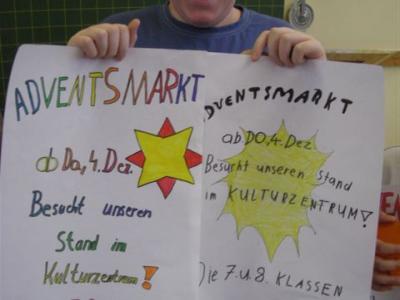 ADVENTSMARKT
ab Do, 4. Dez.
Besucht unseren
Stand im
Kulturzentrum!
ADVENTSMARKT
ab DO, 4. Dez.
Besucht unseren Stand
im KULTURZENTRUM!
Die 7. u. 8. KLASSEN